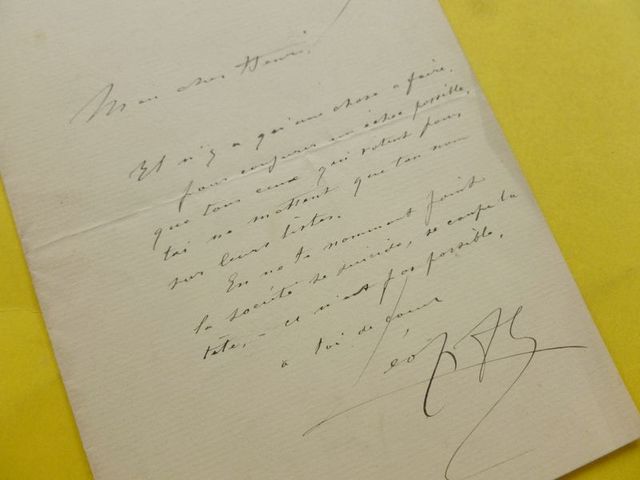 Mon cher Henri,
Il n'y a qu'une chose à faire,
pour conjurer un échec possible,
que tous ceux qui votent pour
toi ne mettent que ton nom
sur leurs listes.
En ne te nommant point
la société se suicide, se coupe la
tête, – et n'est pas possible.
à toi de cœur